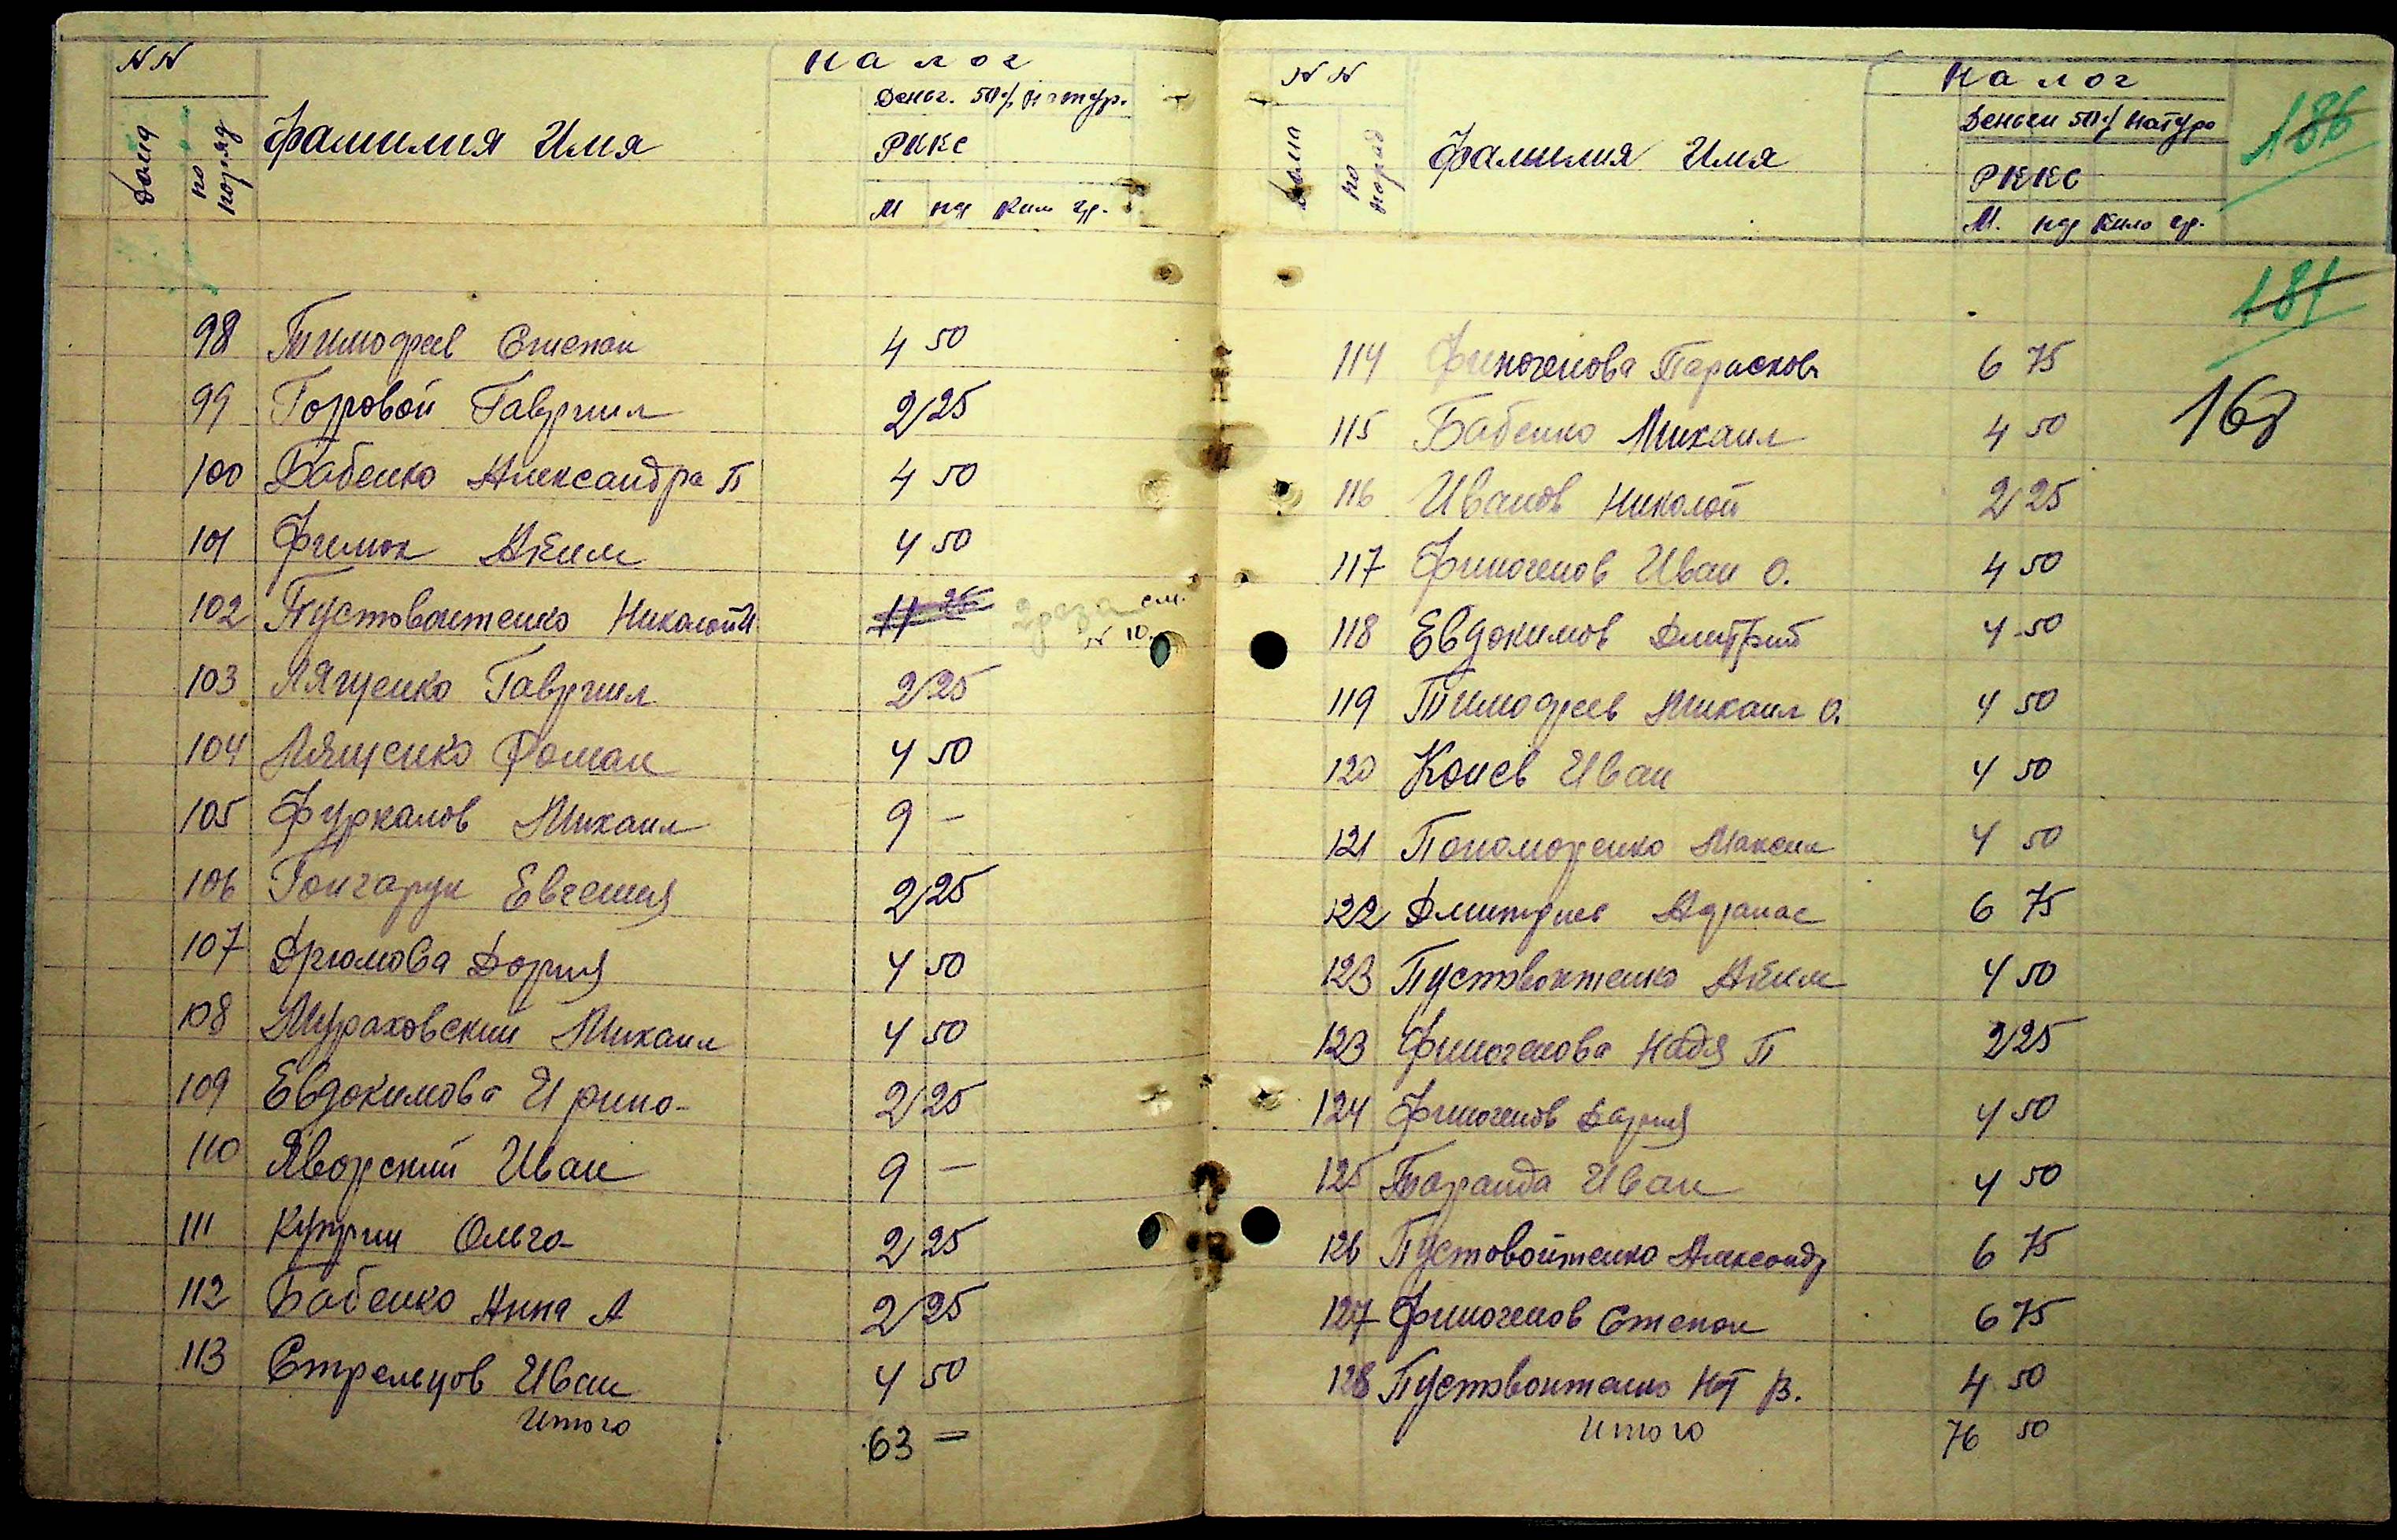 NN
налог
Деньг. 50% натур.
Фамилия Имя
дома
по поряд
РККС
М пф Кил гр.
98 Тимофеев Степан 4 50
99 Горовой Гавриил 2 25
100 Бабенко Александра П 4 50
101 Филюк Аким 4 50
102 Пустовоитенко Николай И 11 25 2 раза см. N 10.
103 Лященко Гавриил 2 25
104 Лященко Роман 4 50
105 Фуркалов Михаил 9 –
106 Гончарук Евгения 2 25
107 Дрюмова Дория 4 50
108 Мураховский Михаил 4 50
109 Евдокимова Ирина 2 25
110 Яворский Иван 9 –
111 Куприн Ольга 2 25
112 Бабенко Анна А 2 25
113 Стрельцов Иван 4 50
Итого 63 =
NN
налог
186
Деньги 50% натуро
Фамилия Имя
дома
по поряд
РККС
М. пф Кило гр.
181
114 Финогенова Парасков 6 75
168
115 Бабенко Михаил 4 50
116 Иванов Николай 2 25
117 Финогенов Иван О. 4 50
118 Евдокимов Дмитрий 4 50
119 Тимофеев Михаил О. 4 50
120 Конев Иван 4 50
121 Пономоренко Максим 4 50
122 Дмитриев Афанас 6 75
123 Пустовоитенко Аким 4 50
123 Финогенова Надя П 2 25
124 Финогенов Дария 4 50
125 Таранда Иван 4 50
126 Пустовойтенко Александр 6 75
127 Финогенов Степан 6 75
128 Пустовоитенко В. 4 50
Итого 76 50